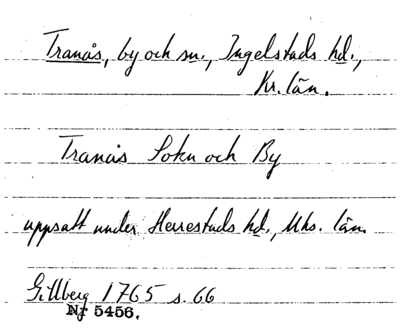 Tranås, by och sn., Ingelstads hd.,
Kr. län.
Tranås Sokn och By
uppsatt under Herrestads hd., Mhs. län.
Gillberg 1765 s. 66
Ny 5456.